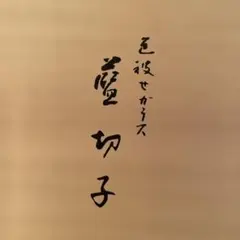 色被せガラス
藍切子